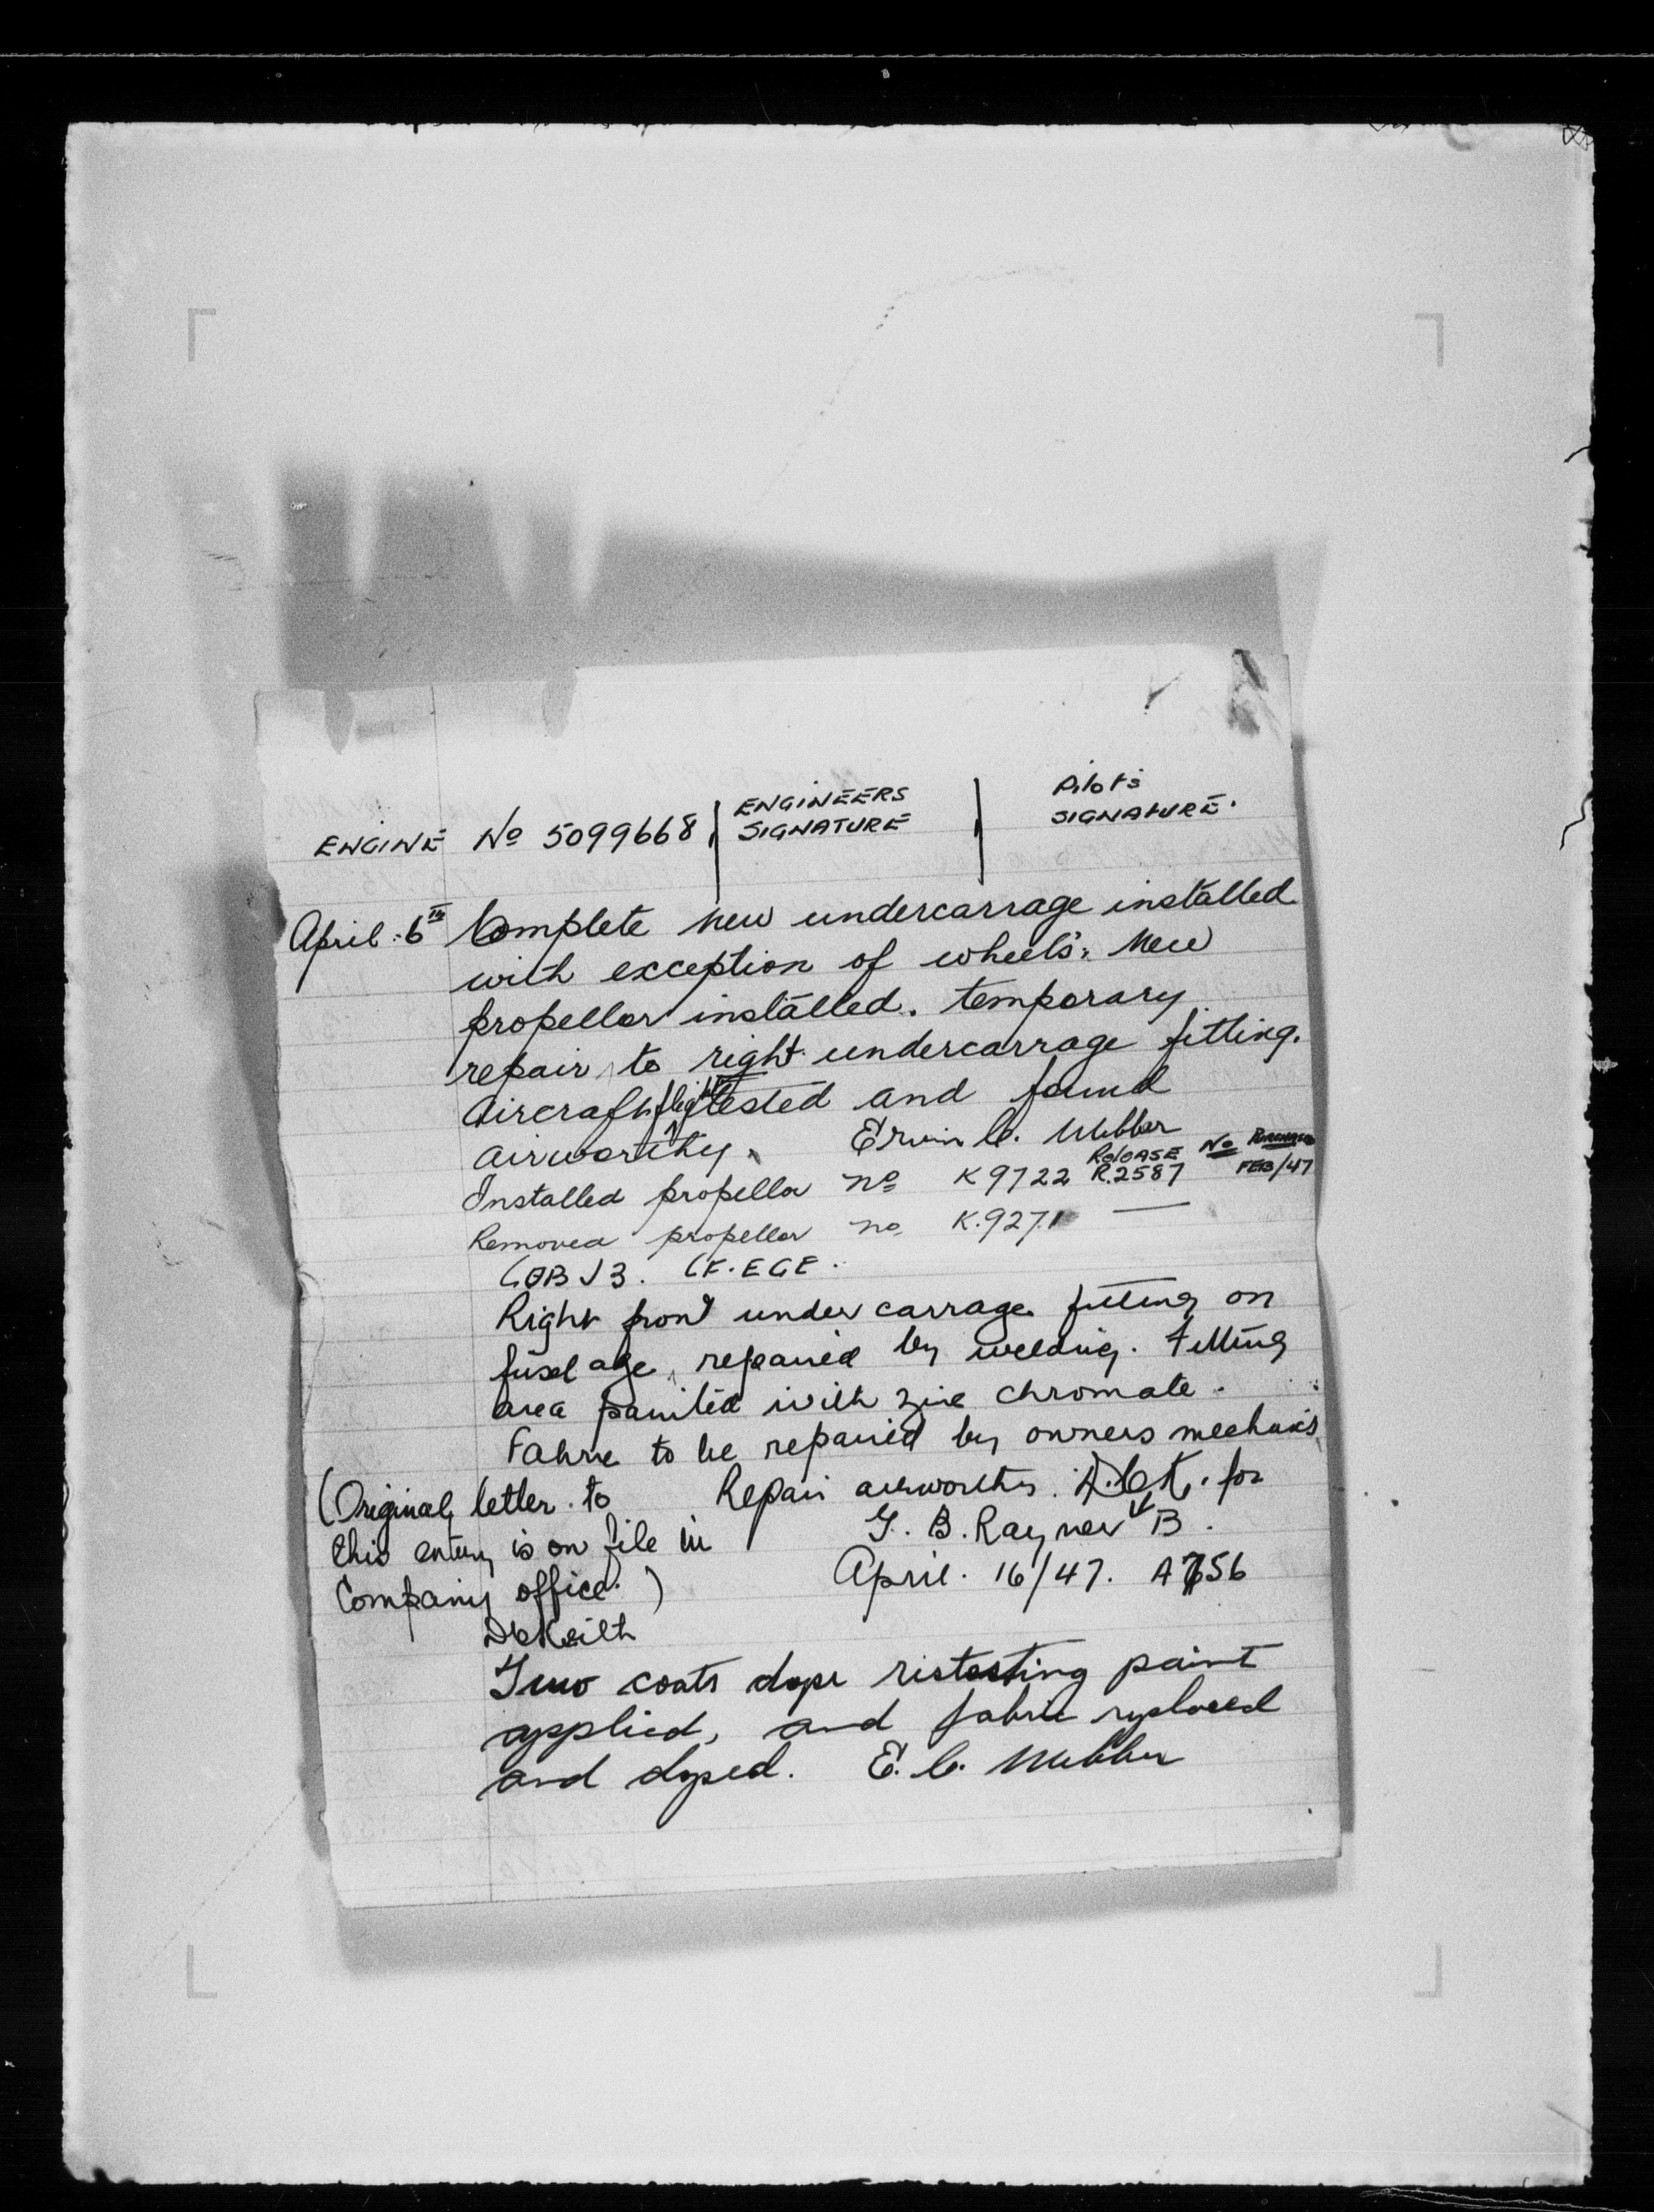 ENGINE No 5099668 | ENGINEERS SIGNATURE | Pilot's SIGNATURE.
April 6th Complete new undercarrage installed
with exception of wheels. New
propellor installed. temporary
repair to right undercarrage fitting.
Aircraft flight tested and found
airworthy. Ervin C. Webber
Installed propellor no K9722 RELEASE No R.2587 FEB/47
Removed propellor no K.9271 —
COB J3. CF.EGE.
Right front under carrage fitting on
fuselage, repaired by welding. Fitting
area painted with zinc chromate.
Fabric to be repaired by owners mechanics
(Original letter to Repair airworthy. for
this entry is on file in G. B. Rayner B.
Company office.) April. 16/47. A7656
DeKeith
Two coats dope ristesting paint
applied, and fabric replaced
and doped. E. C. Webber